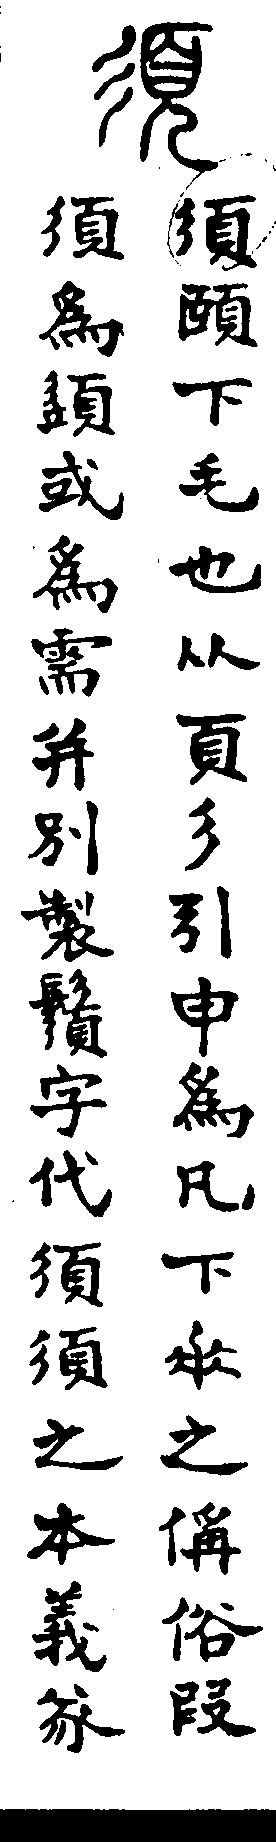 須
須頤下毛也从頁彡引申爲凡下𠂹之偁俗叚
須爲䇓或爲需并別製鬚字代須須之本義㒸